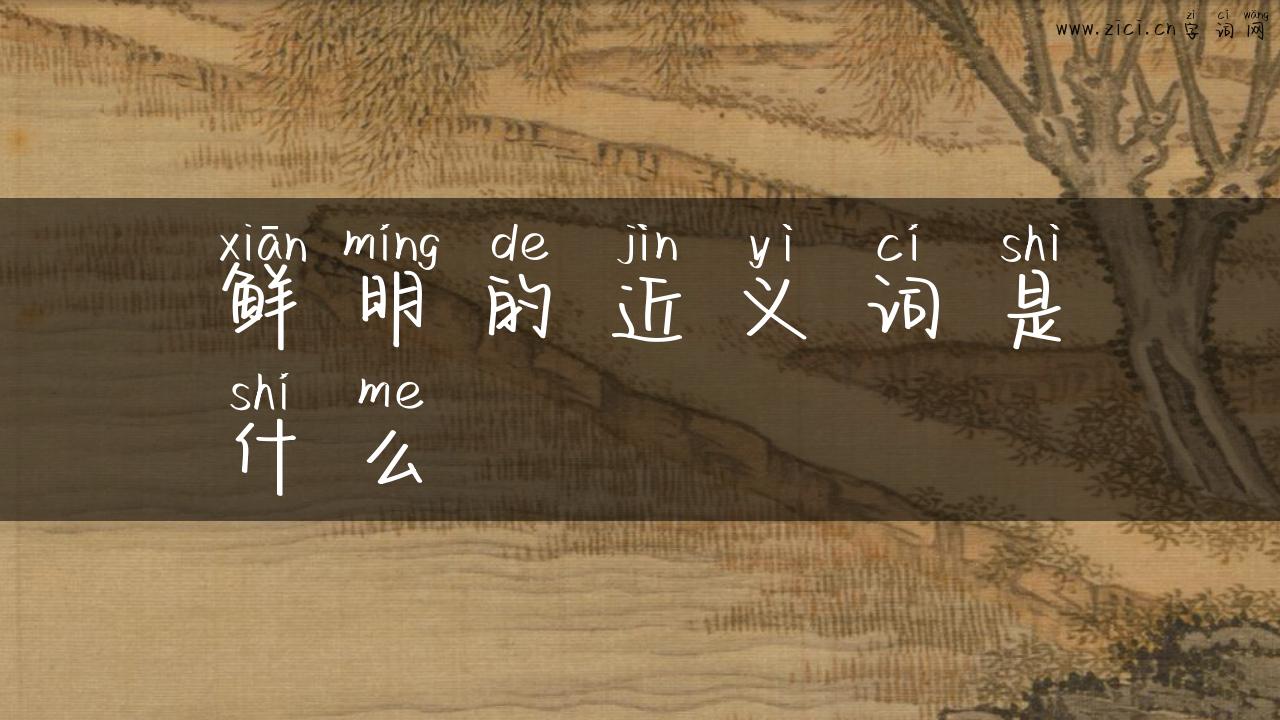 zì cí wǎng
www.zici.cn字词网
xiān míng de jìn yì cí shì
鲜明的近义词是
shí me
什么